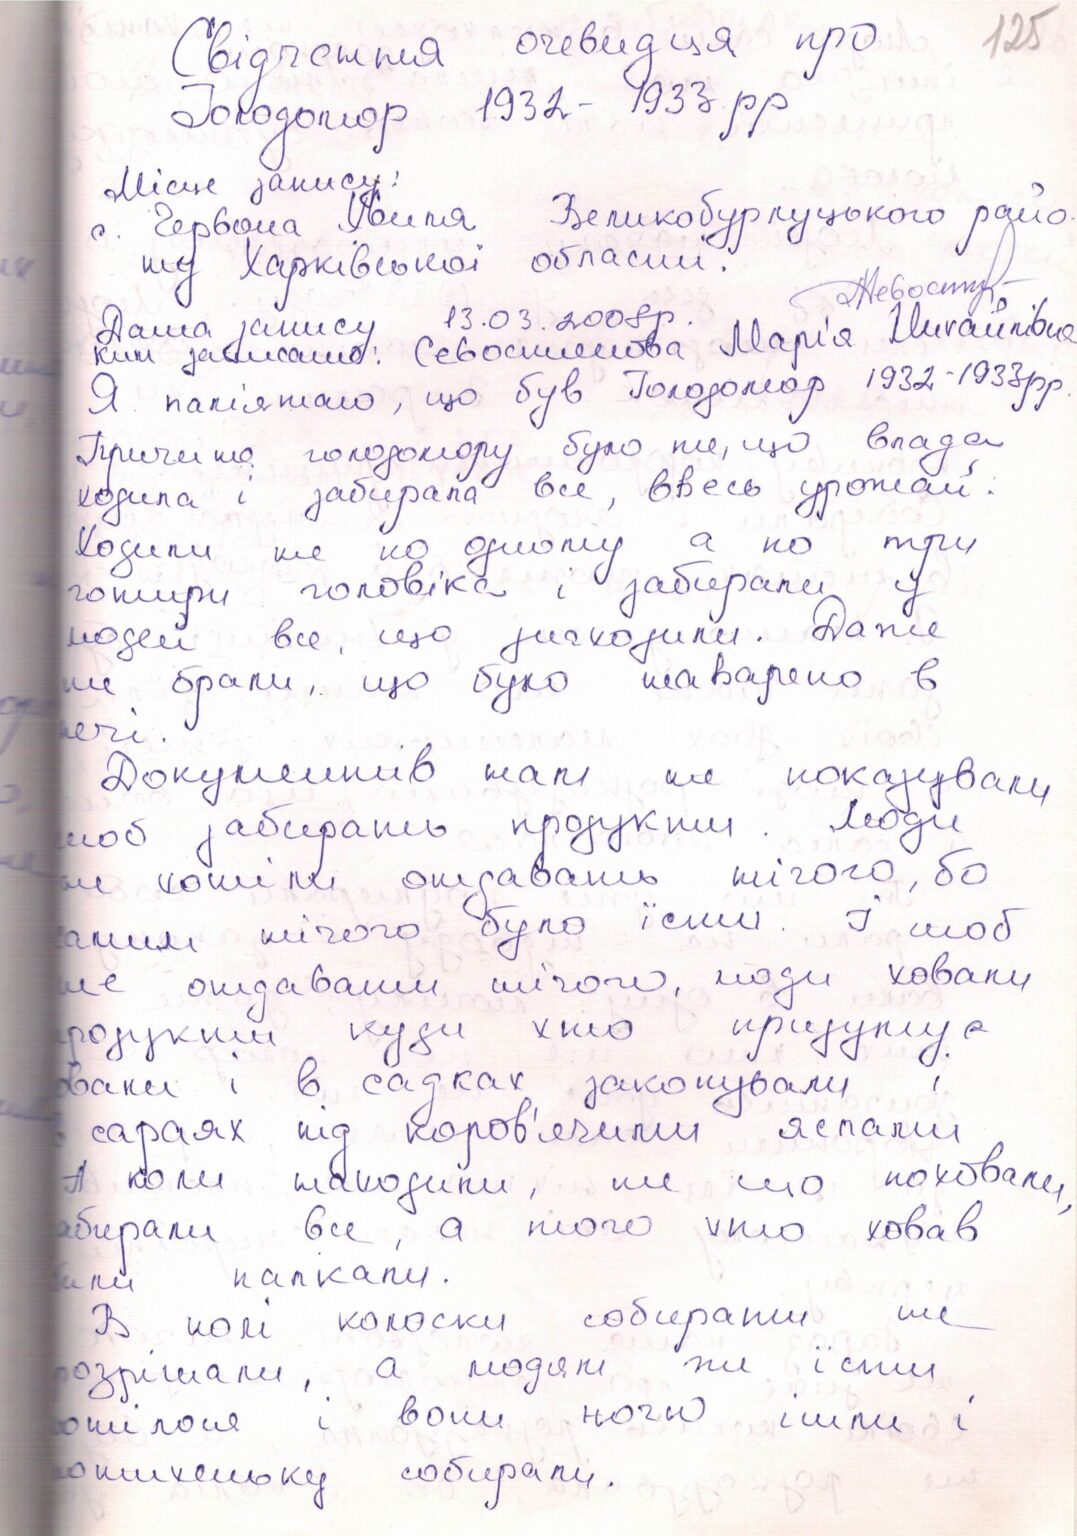 125
Свідчення очевидця про
Голодомор 1932-1933 рр
Місце запису:
с. Червона Хвиля Великобурлуцького райо-
ну Харківської області.
Дата запису 13.03.2008р.
ким записано: Севостьянова Марія Михайлівна
Я пам'ятаю, що був Голодомор 1932-1933рр.
Причиною голодомору було те, що влада
ходила і забирала все, ввесь урожай.
Ходили не по одному а по три
чотири чоловіка і забирали у
людей все, що знаходили. Даже
ти брали, що було наварено в
печі.
Документів нам не показували
щоб забирать продукти. Люди
не хотіли отдавать нічого, бо
самим нічого було їсти. І щоб
не отдавати нічого, люди ховали
продукти куди хто придумує
ховали і в садках закопували і
в сараях під коров'ячими яслами
А коли находили, ти що поховали,
забирали все, а того хто ховав
били палками.
В полі колоски собирати не
розрішали, а людям же їсти
хотілося і вони ночю ішли і
потихеньку собирали.